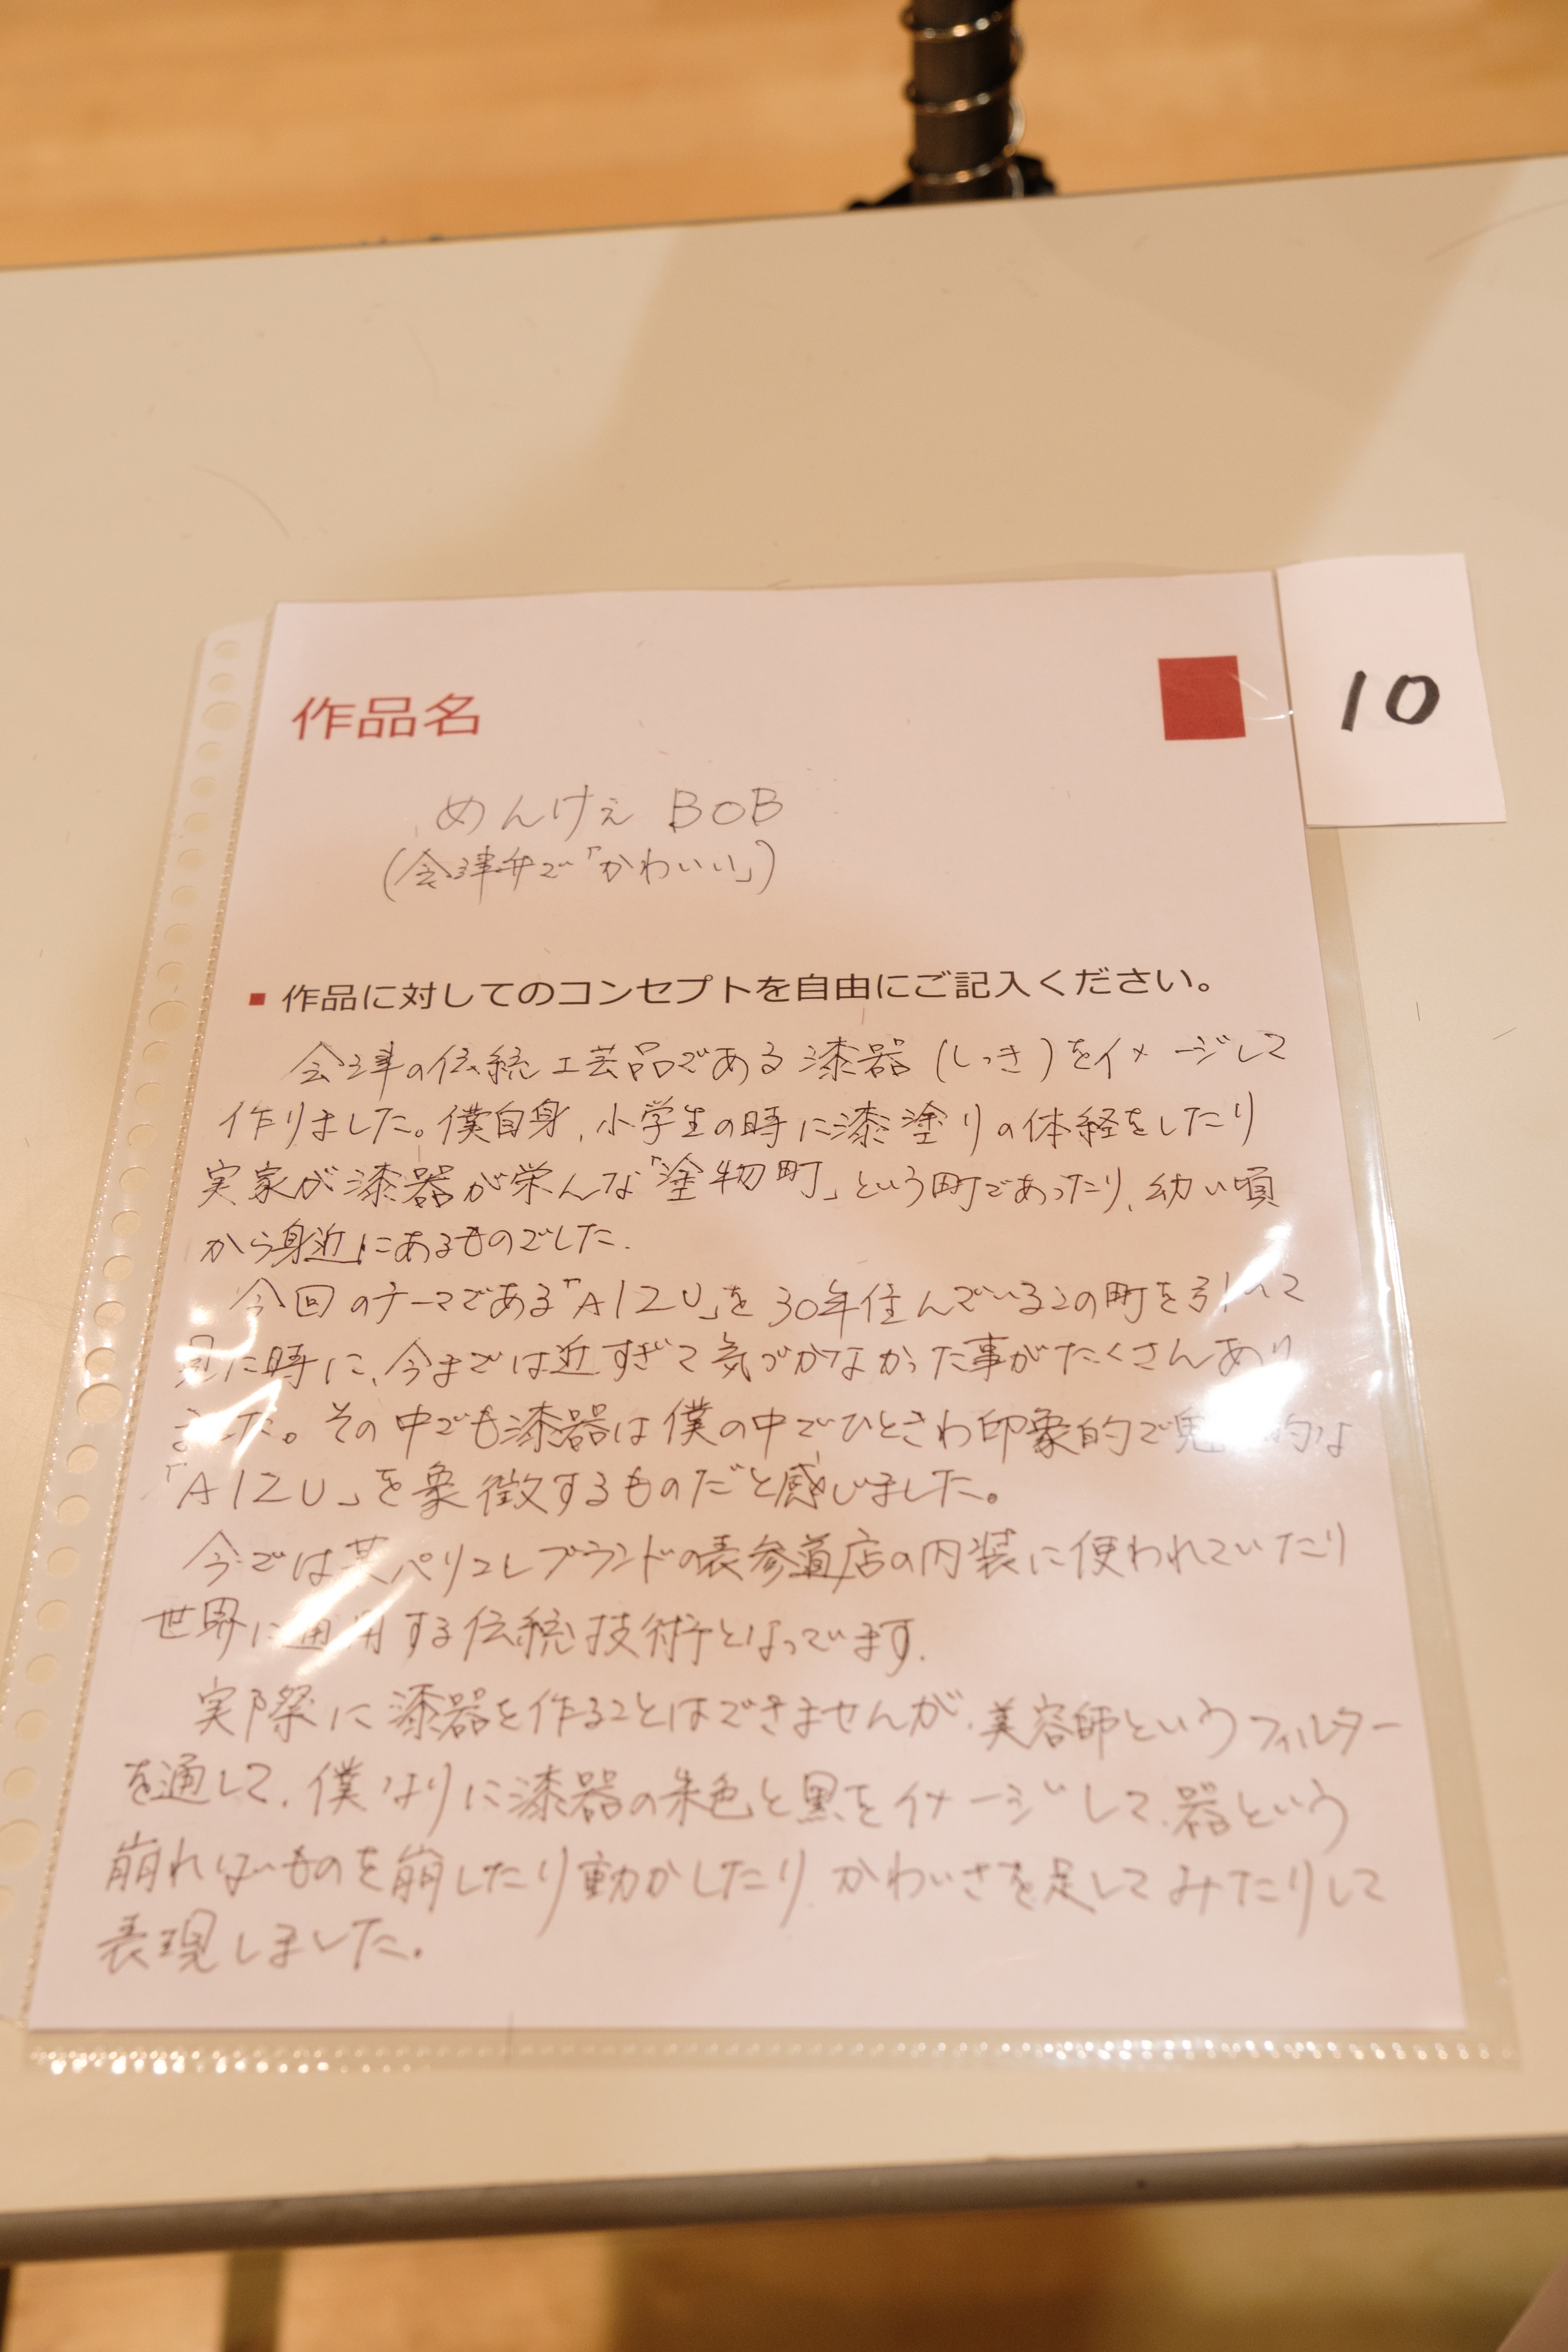 作品名
10
めんけぇ BOB
(会津弁で「かわいい」)
▪ 作品に対してのコンセプトを自由にご記入ください。
会津の伝統工芸品である漆器(しっき)をイメージして
作りました。僕自身、小学生の時に漆塗りの体経をしたり
実家が漆器が栄んな「塗物町」という町であったり、幼い頃
から身近にあるものでした.
今回のテーマである「AIZU」を30年住んでいるこの町を引いて
見た時に、今までは近すぎて気づかなかった事がたくさんあり
ました。その中でも漆器は僕の中でひときわ印象的で魅力的な
「AIZU」を象徴するものだと感じました。
今では某パリコレブランドの表参道店の内装に使われていたり
世界に通用する伝統技術となっています.
実際に漆器を作ることはできませんが、美容師というフィルター
を通して、僕なりに漆器の朱色と黒をイメージして、器という
崩れないものを崩したり動かしたり、かわいさを足してみたりして
表現しました。